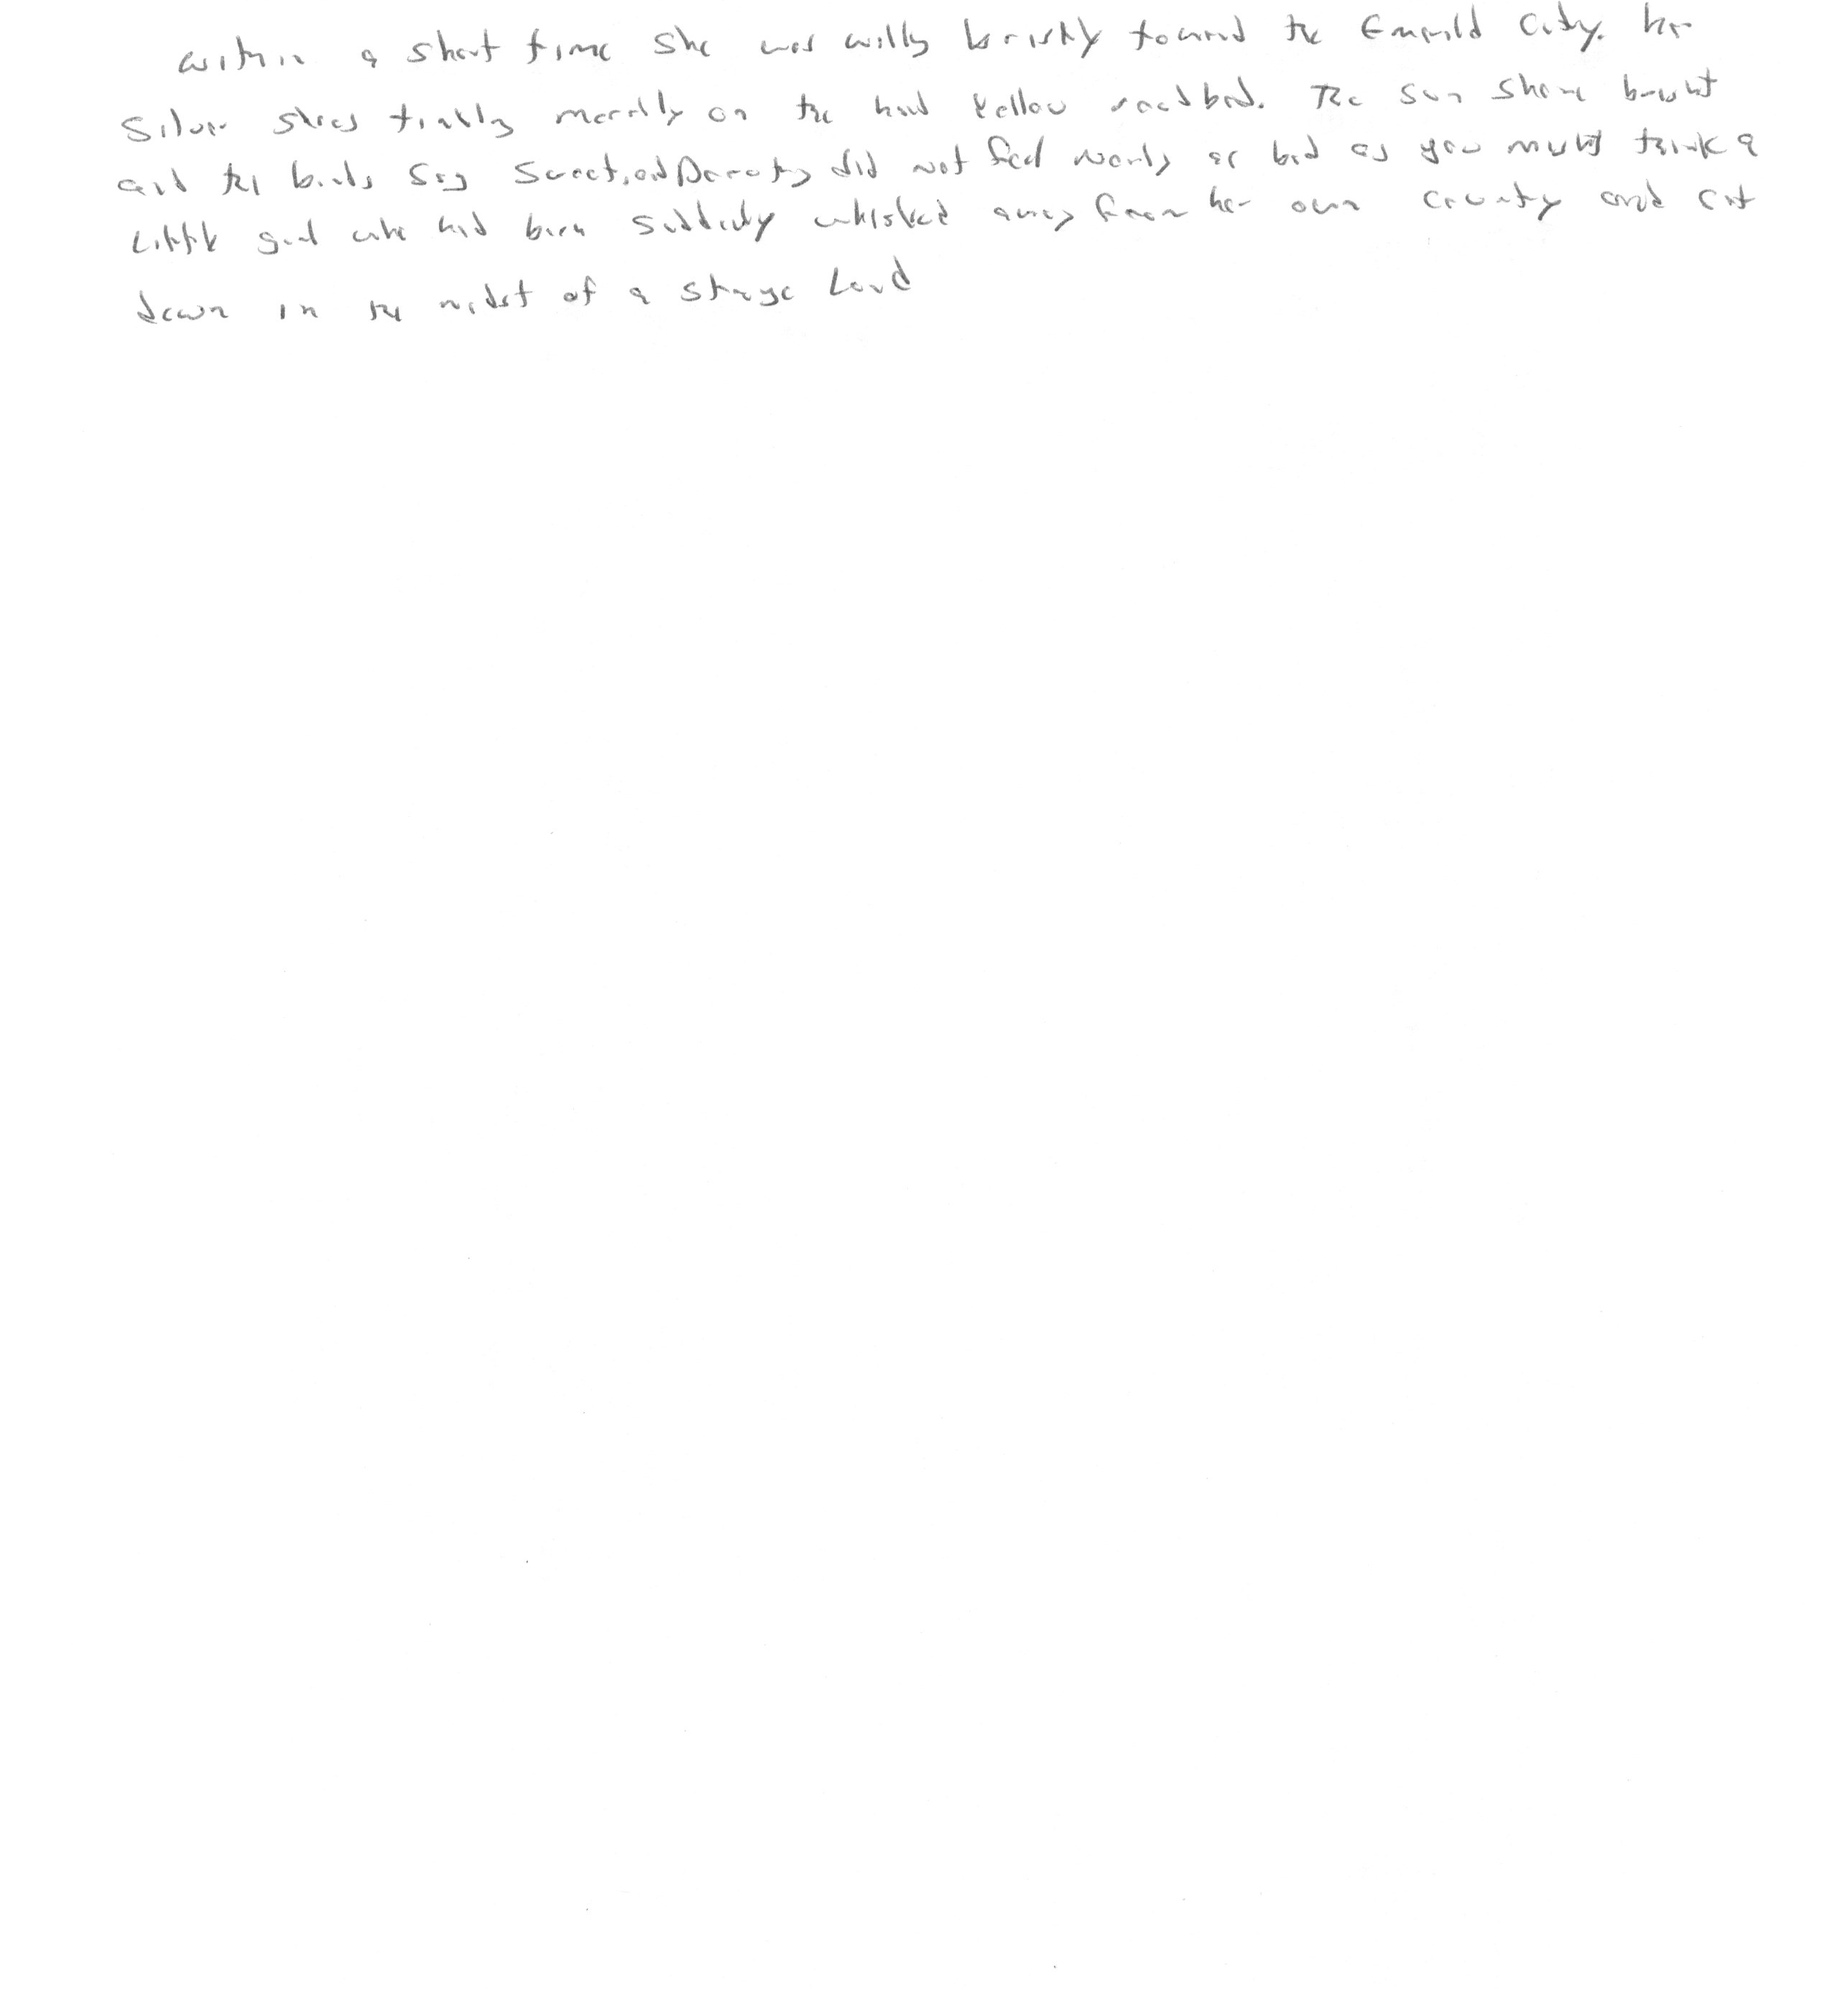 within a short time she was walking briskly toward the Emerald City. her
Silver shoes tinkling merrily on the hard yellow roadbed. The sun shone bright
and the birds sang sweet, and Dorothy did not feel nearly as bad as you might think a
little girl who had been suddenly whisked away from her own country and set
down in the midst of a strange land